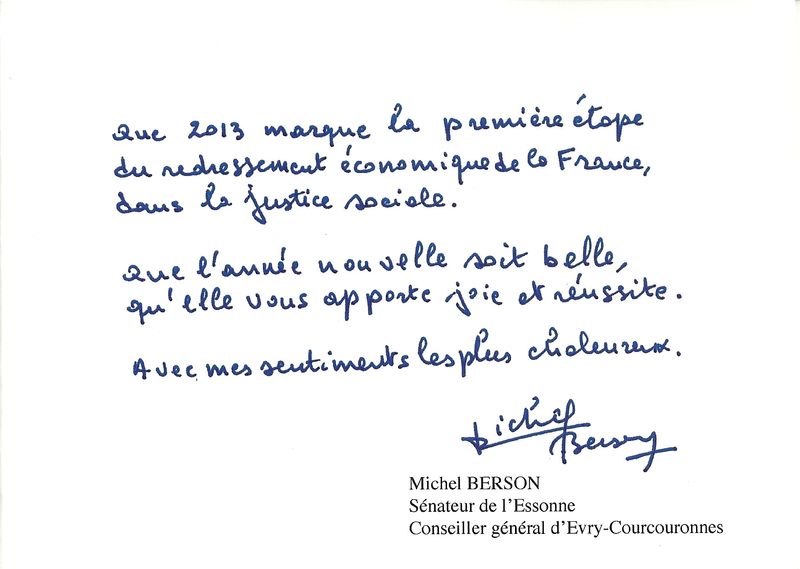 Que 2013 marque la première étape
du redressement économique de la France,
dans la justice sociale.
Que l'année nouvelle soit belle,
qu'elle vous apporte joie et réussite.
Avec mes sentiments les plus chaleureux.
Michel
Berson
Michel BERSON
Sénateur de l'Essonne
Conseiller général d'Evry-Courcouronnes